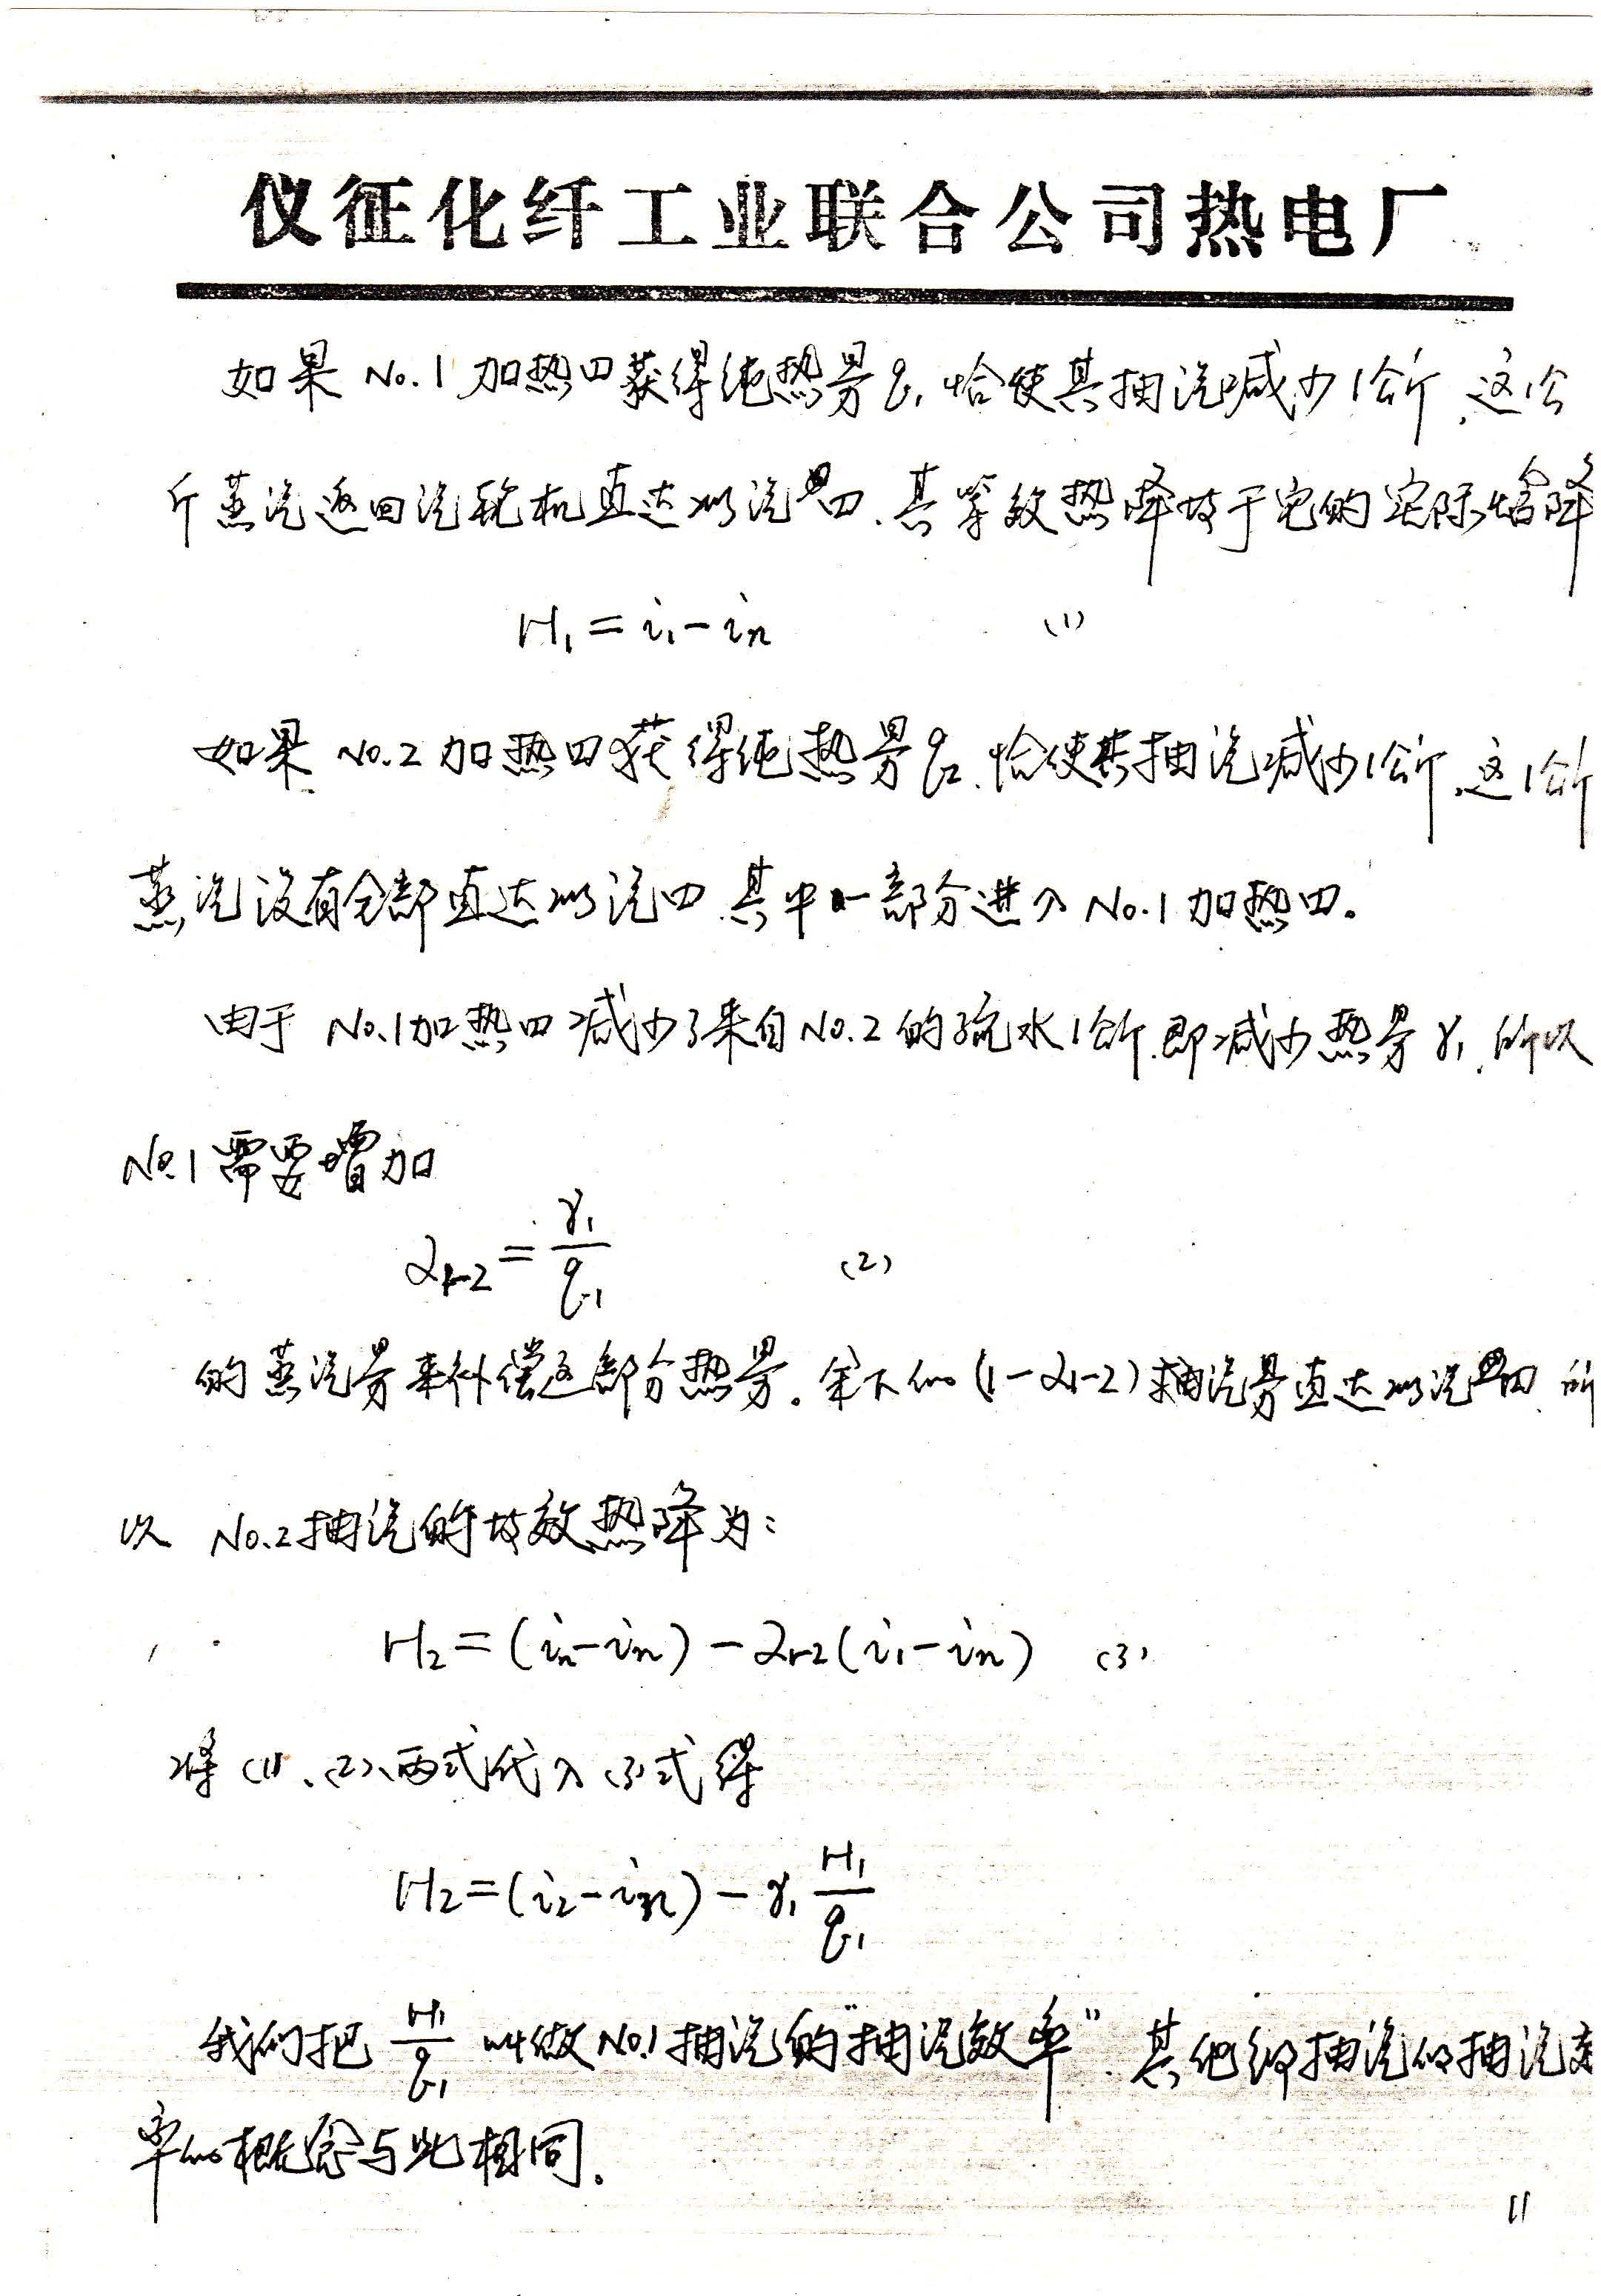 仪征化纤工业联合公司热电厂
如果 No.1 加热口获得纯热量 q₁ 恰使其抽汽减少1公斤,这1公
斤蒸汽返回汽轮机直达凝汽口,其等效热降等于它的实际焓降
H₁ = i₁ - iₙ (1)
如果 No.2 加热口获得纯热量 q₂,恰使其抽汽减少1公斤,这1公斤
蒸汽没有全部直达凝汽口,其中一部分进入 No.1 加热口。
由于 No.1 加热口减少了来自 No.2 的疏水1公斤,即减少热量 γ₁,所以
No.1 需要增加
α₁₋₂ = γ₁/q₁ (2)
的蒸汽量来补偿这部分热量。余下的 (1-α₁₋₂) 抽汽量直达凝汽口,所
以 No.2 抽汽的等效热降为:
H₂ = (i₂ - iₙ) - α₁₋₂(i₁ - iₙ) (3)
将 (1)、(2)、两式代入 (3) 式得
H₂ = (i₂ - iₙ) - γ₁ H₁/q₁
我们把 H₁/q₁ 叫做 No.1 抽汽的"抽汽效率",其他级抽汽的抽汽效
率的概念与此相同.
11